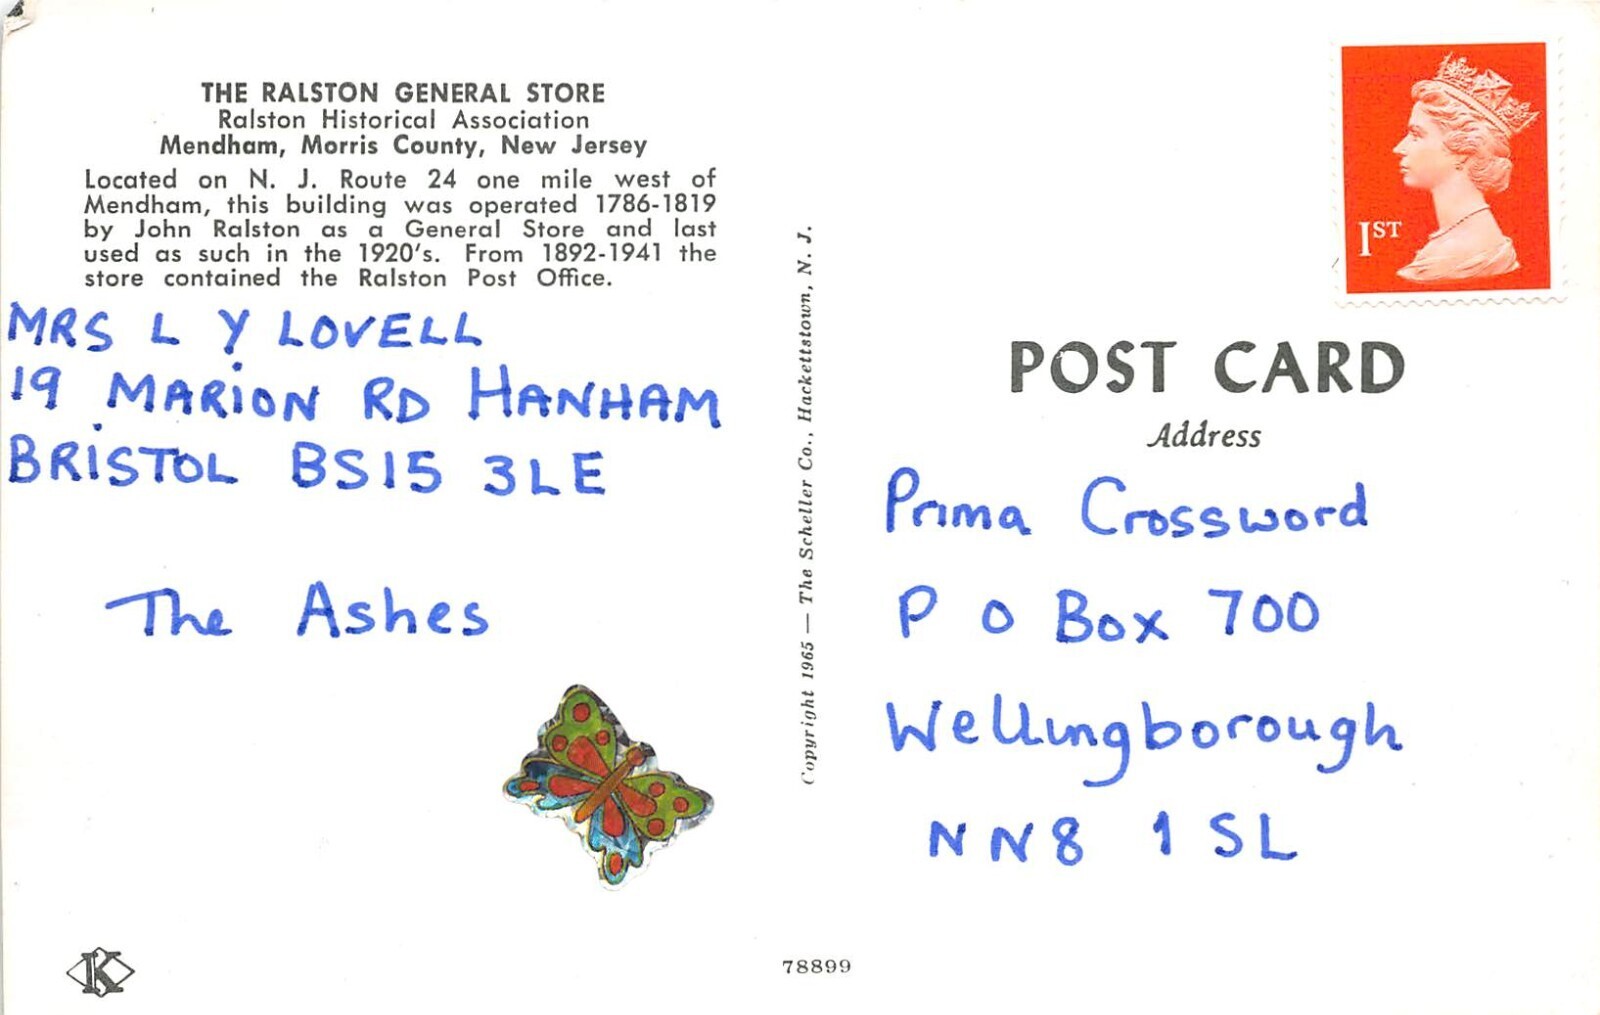 THE RALSTON GENERAL STORE
Ralston Historical Association
Mendham, Morris County, New Jersey
Located on N. J. Route 24 one mile west of
Mendham, this building was operated 1786-1819
by John Ralston as a General Store and last
used as such in the 1920's. From 1892-1941 the
store contained the Ralston Post Office.
MRS L Y LOVELL
19 MARION RD HANHAM
BRISTOL BS15 3LE
The Ashes
K
Copyright 1965 — The Scheller Co., Hackettstown, N. J.
78899
1ST
POST CARD
Address
Prima Crossword
P O Box 700
Wellingborough
NN8 1SL